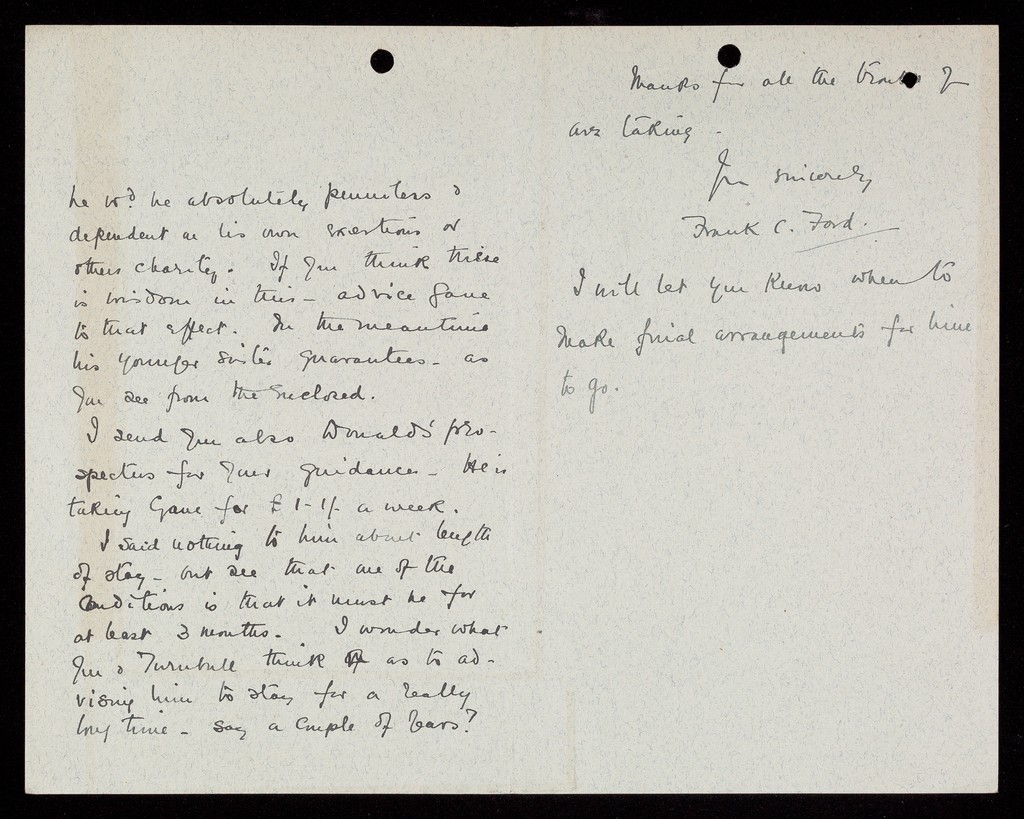 he wd. be absolutely penniless &
dependent on his own exertions or
others charity. If you think there
is wisdom in this - advice Gane
to that effect. In the meantime
his younger sister guarantees - as
you see from the enclosed.
I send you also Donalds' pro-
spectus for your guidance - He is
taking Gane for £1-1/- a week.
I said nothing to him about length
of stay - but see that one of the
Conditions is that it must be for
at least 3 months. I wonder what
you & Turnbull think as to ad-
vising him to stay for a really
long time - say a couple of years?
Thanks for all the trouble you
are taking -
Yrs sincerely
Frank C. Ford.
I will let you know when to
make final arrangements for him
to go.